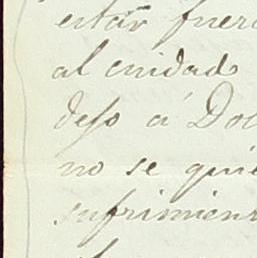 estar fuer
al cuidado
dejo á Do
no se qui
sufrimien